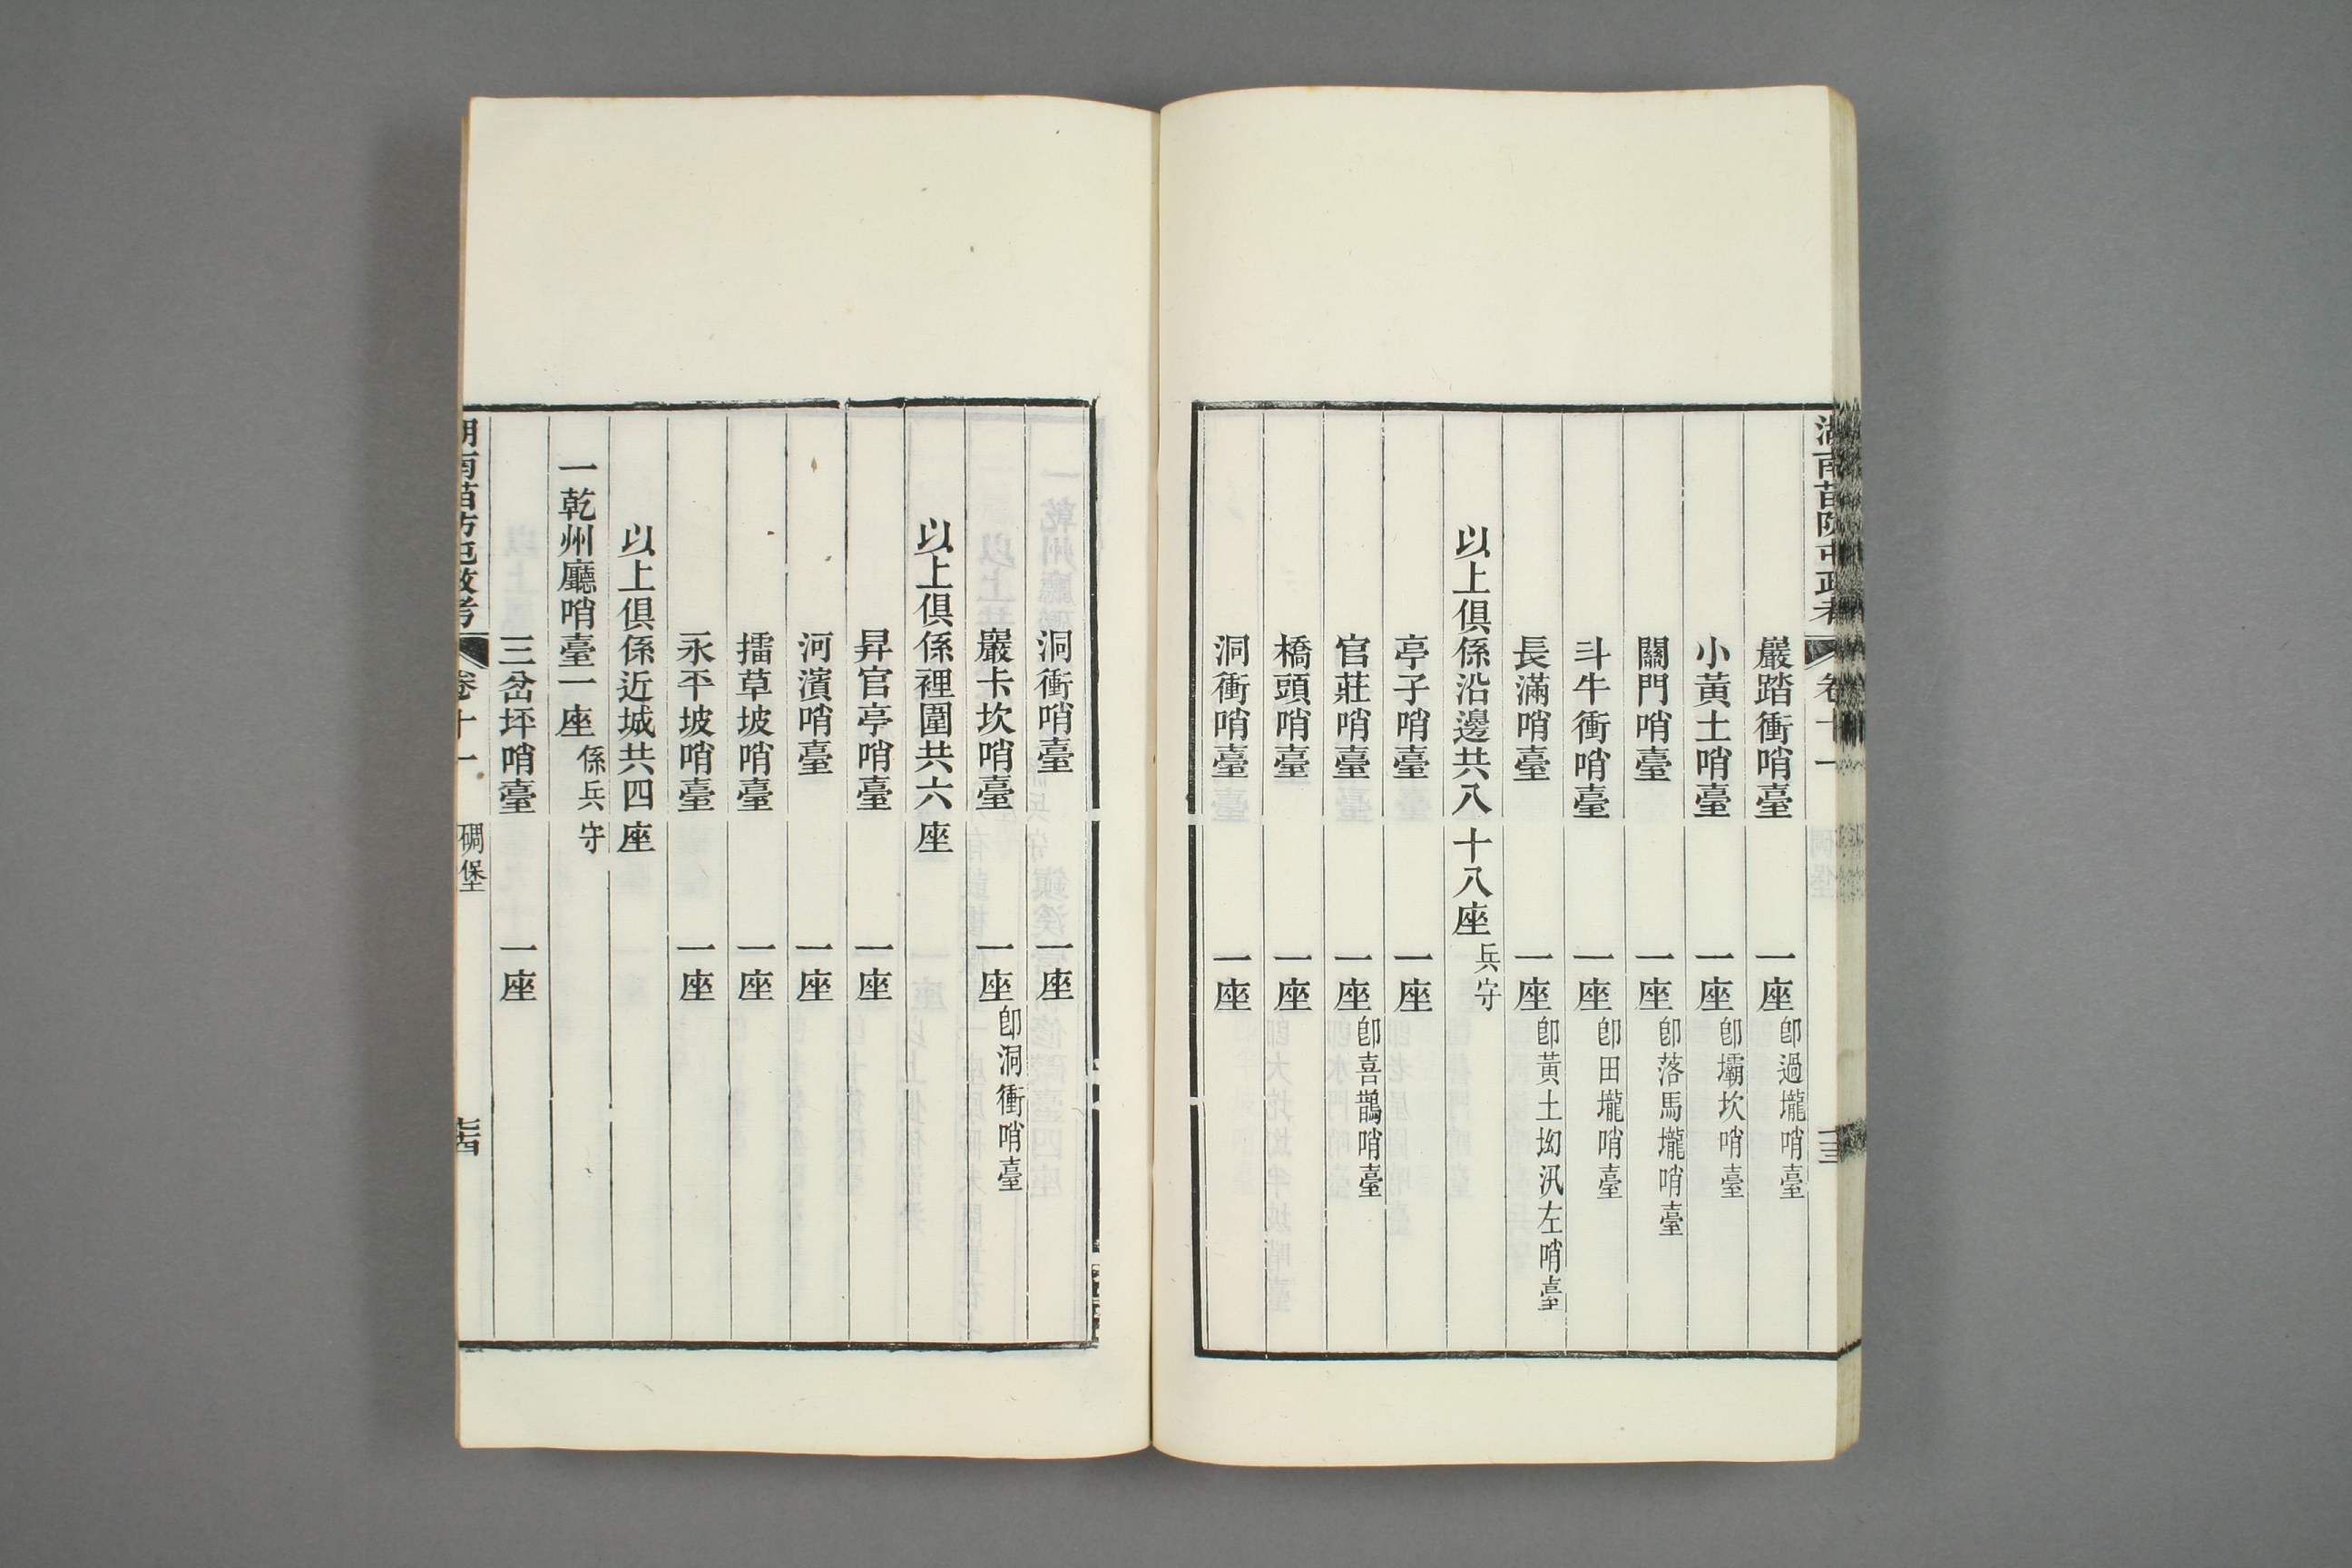 湖南苗防屯政考 卷十一
巖踏衝哨臺 一座 卽過壠哨臺
小黃土哨臺 一座 卽壩坎哨臺
關門哨臺 一座 卽落馬壠哨臺
斗牛衝哨臺 一座 卽田壠哨臺
長滿哨臺 一座 卽黃土坳汛左哨臺
以上俱係沿邊共八十八座 兵守
亭子哨臺 一座
官莊哨臺 一座 卽喜鵲哨臺
橋頭哨臺 一座
洞衝哨臺 一座
洞衝哨臺 一座
巖卡坎哨臺 一座 卽洞衝哨臺
以上俱係裡圍共六座
昇官亭哨臺 一座
河濱哨臺 一座
擂草坡哨臺 一座
永平坡哨臺 一座
以上俱係近城共四座
一乾州廳哨臺一座 係兵守
三岔坪哨臺 一座
湖南苗防屯政考 卷十一 碉堡 七四